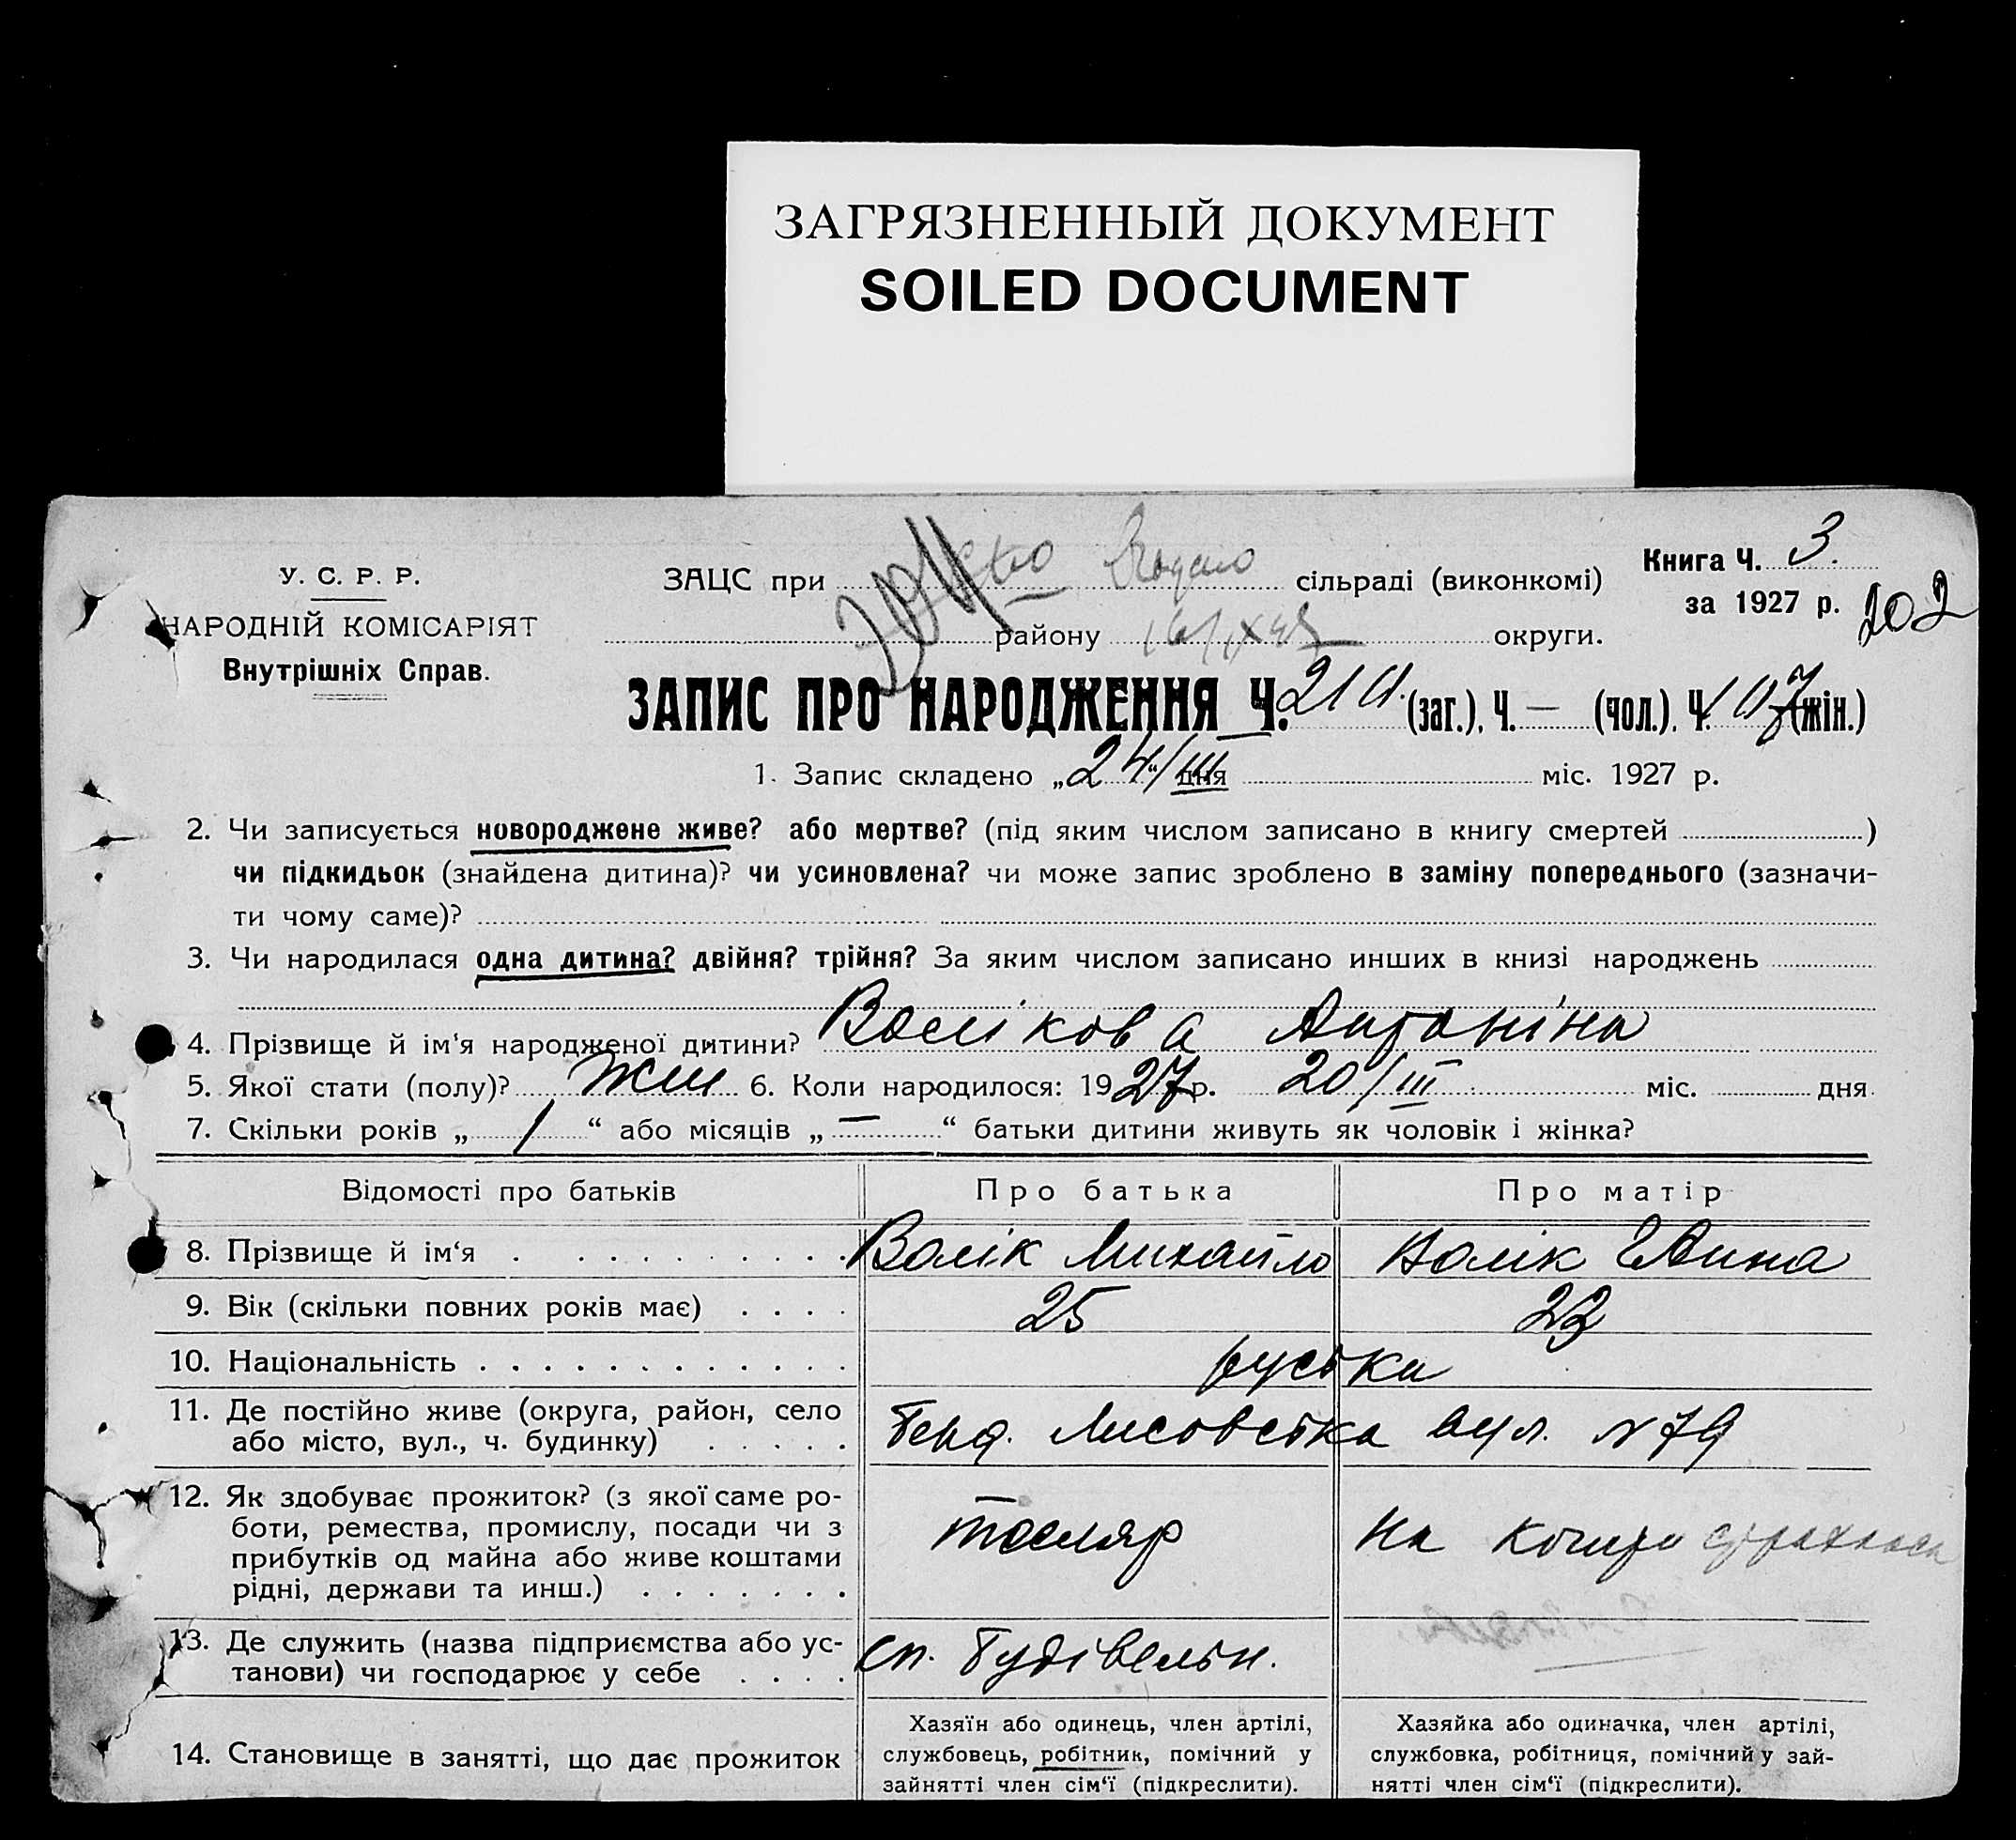 ЗАГРЯЗНЕННЫЙ ДОКУМЕНТ
SOILED DOCUMENT
У. С. Р. Р.
НАРОДНІЙ КОМІСАРІЯТ
Внутрішніх Справ.
ЗАЦС при сільраді (виконкомі)
району округи.
Книга Ч. 3.
за 1927 р. 202
ЗАПИС ПРО НАРОДЖЕННЯ Ч. (заг.), Ч. — (чол.), Ч. 107 (жін.)
1. Запис складено „24/III“ дня міс. 1927 р.
2. Чи записується новороджене живе? або мертве? (під яким числом записано в книгу смертей )
чи підкидьок (знайдена дитина)? чи усиновлена? чи може запис зроблено в заміну попереднього (зазначи-
ти чому саме)?
3. Чи народилася одна дитина? двійня? трійня? За яким числом записано инших в книзі народжень
4. Прізвище й ім'я народженої дитини? Волікова Антоніна
5. Якої стати (полу)? жін 6. Коли народилося: 1927 р. 20/III міс. дня
7. Скільки років „ 1 “ або місяців „ — “ батьки дитини живуть як чоловік і жінка?
Відомості про батьків Про батька Про матір
8. Прізвище й ім‘я . . . . . . . . . . Волік Михайло Волік Ганна
9. Вік (скільки повних років має) . . . . 25 23
10. Національність . . . . . . . . . . . . . руська
11. Де постійно живе (округа, район, село
або місто, вул., ч. будинку) . . . . . Лисовська вул. №79
12. Як здобуває прожиток? (з якої саме ро-
боти, ремества, промислу, посади чи з
прибутків од майна або живе коштами
рідні, держави та инш.) . . . . . . . тесляр на кошти
13. Де служить (назва підприємства або ус-
танови) чи господарює у себе . . . . сп. Будівельн.
14. Становище в занятті, що дає прожиток
Хазяїн або одинець, член артілі,
службовець, робітник, помічний у
зайнятті член сім‘ї (підкреслити).
Хазяйка або одиначка, член артілі,
службовка, робітниця, помічний у зай-
нятті член сім‘ї (підкреслити).